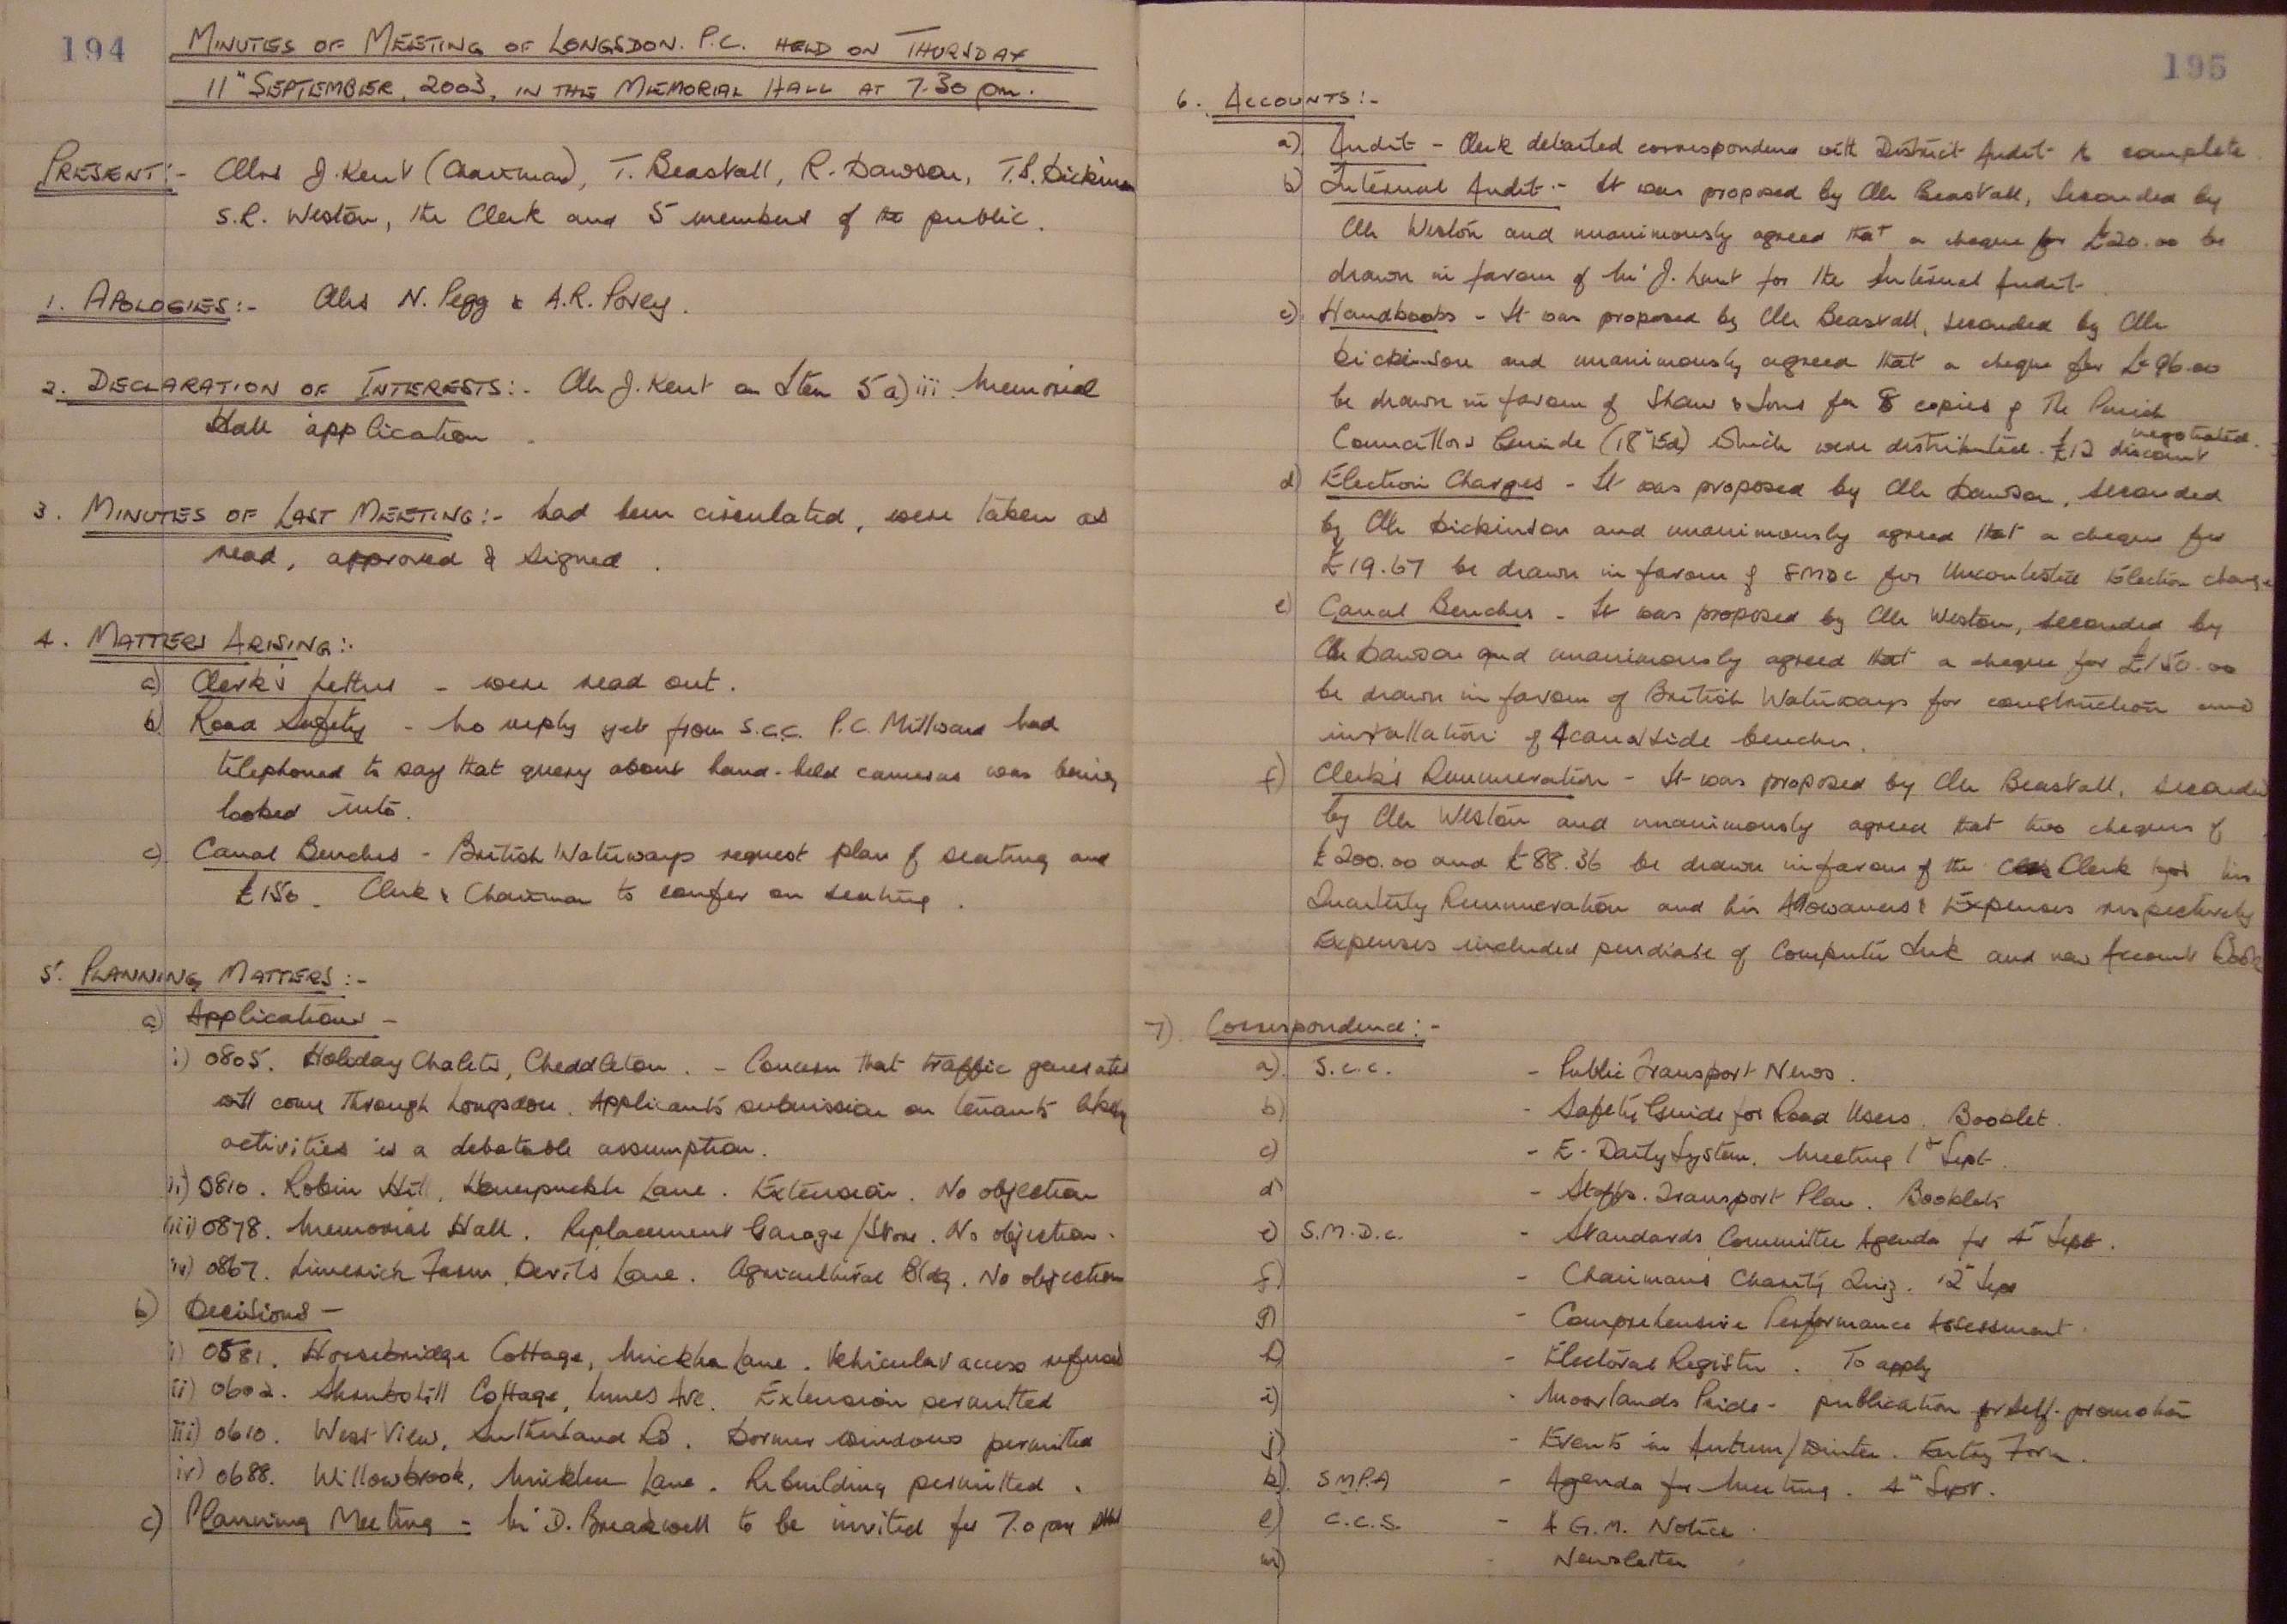 194
MINUTES OF MEETING OF LONGSDON. P.C. HELD ON THURSDAY
11th SEPTEMBER, 2003, IN THE MEMORIAL HALL AT 7.30 pm.
PRESENT:- Cllrs J. Kent (Chairman), T. Beastall, R. Dawson, T.S. Dickinson
S.R. Weston, the Clerk and 5 members of the public.
1. APOLOGIES:- Cllrs N. Pegg & A.R. Povey.
2. DECLARATION OF INTERESTS:- Cllr J. Kent on Item 5a)iii Memorial
Hall application
3. MINUTES OF LAST MEETING:- had been circulated, were taken as
read, approved & signed.
4. MATTERS ARISING:-
a) Clerk's Letters - were read out.
b) Road Safety - No reply yet from S.C.C. P.C. Millward had
telephoned to say that query about hand-held cameras was being
looked into.
c) Canal Benches - British Waterways request plan of seating and
£150. Clerk & Chairman to confer on seating.
5. PLANNING MATTERS:-
a) Applications -
i) 0805. Holiday Chalets, Cheddleton. - Concern that traffic generated
will come through Longsdon. Applicants submission on tenants likely
activities is a debatable assumption.
ii) 0810. Robin Hill, Honeysuckle Lane. Extension. No objection
iii) 0878. Memorial Hall. Replacement Garage/Store. No objection.
iv) 0867. Limerick Farm, Devils Lane. Agricultural Bldg. No objection
b) Decisions -
i) 0581. Horsebridge Cottage, Micklea Lane. Vehicular access refused
ii) 0602. Cottage, Ave. Extension permitted
iii) 0610. West View, Sutherland Rd. Dormer windows permitted
iv) 0688. Willowbrook, Micklea Lane. Rebuilding permitted.
c) Planning Meeting - Mr D. Breakwell to be invited for 7.0 pm
195
6. ACCOUNTS:-
a) Audit - Clerk detailed correspondence with District Audit to complete.
b) Internal Audit - It was proposed by Cllr Beastall, seconded by
Cllr Weston and unanimously agreed that a cheque for £20.00 be
drawn in favour of Mr J. for the Internal Audit.
c) Handbooks - It was proposed by Cllr Beastall, seconded by Cllr
Dickinson and unanimously agreed that a cheque for £96.00
be drawn in favour of Shaw & Sons for 8 copies of The Parish
Councillors Guide (18th Ed) which were distributed. £12 discount negotiated.
d) Election Charges - It was proposed by Cllr Dawson, seconded
by Cllr Dickinson and unanimously agreed that a cheque for
£19.67 be drawn in favour of SMDC for Uncontested Election charge
e) Canal Benches - It was proposed by Cllr Weston, seconded by
Cllr Dawson and unanimously agreed that a cheque for £150.00
be drawn in favour of British Waterways for construction and
installation of 4 canalside benches.
f) Clerk's Remuneration - It was proposed by Cllr Beastall, seconded
by Cllr Weston and unanimously agreed that two cheques of
£200.00 and £88.36 be drawn in favour of the Clerk for his
Quarterly Remuneration and his Allowances & Expenses respectively
Expenses included purchase of Computer Ink and new Account Book
7) Correspondence:-
a) S.C.C. - Public Transport News.
b) - Safety Guide for Road Users. Booklet.
c) - E-Daity System. Meeting 1st Sept.
d) - Staffs. Transport Plan. Booklets
e) S.M.D.C. - Standards Committee Agenda for 4th Sept.
f) - Chairman's Charity Quiz. 12th Sept
g) - Comprehensive Performance Assessment.
h) - Electoral Register. To apply
i) - Moorlands Pride - publication for self-promotion
j) - Events in Autumn/Winter. Entry Form.
k) S.M.P.A - Agenda for Meeting. 4th Sept.
l) C.C.S. - A.G.M. Notice.
m) - Newsletter